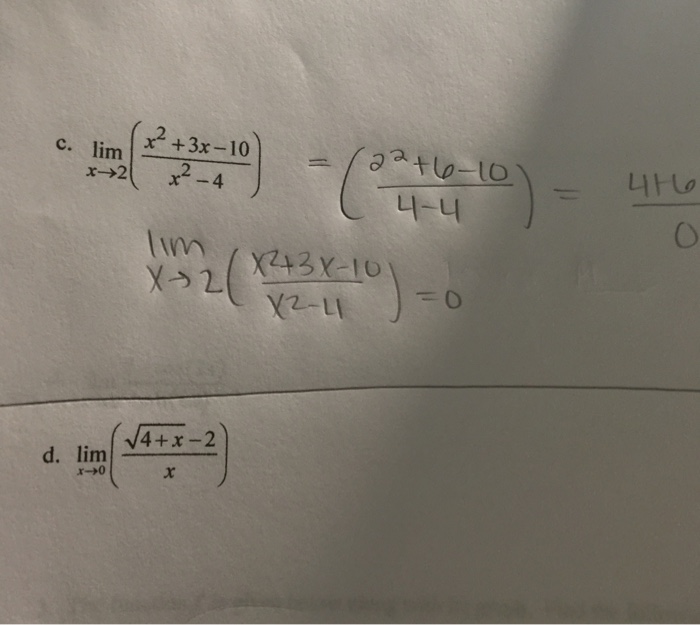 c. lim x→2 ( (x² + 3x − 10) / (x² − 4) ) = ( (2² + 6 − 10) / (4 − 4) ) = (4 + 6) / 0
lim x→2 ( (x² + 3x − 10) / (x² − 4) ) = 0
d. lim x→0 ( (√(4 + x) − 2) / x )